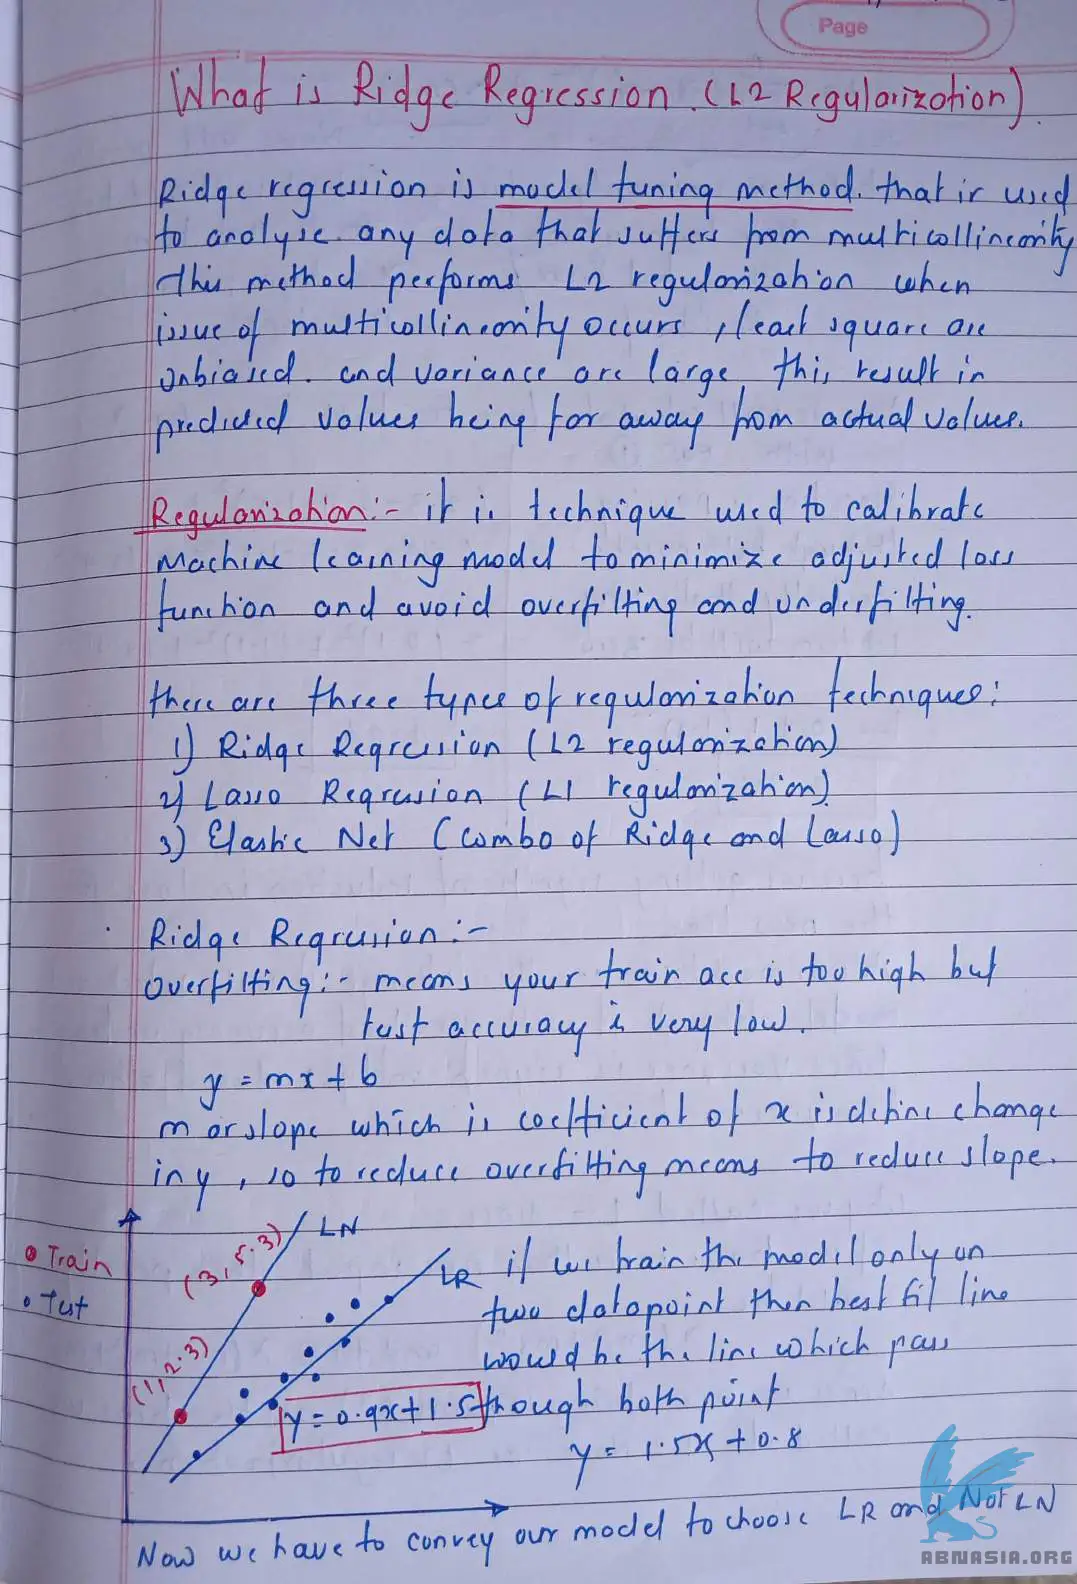 Page
What is Ridge Regression. (L2 Regularization).
Ridge regression is model tuning method. that is used
to analyse any data that suffers from multicollinearity
this method performs L2 regularization when
issue of multicollinearity occurs, least square are
unbiased. and variance are large, this result in
predicted values being far away from actual values.
Regularization:- it is technique used to calibrate
Machine learning model to minimize adjusted loss
function and avoid overfitting and underfitting.
there are three types of regularization techniques:
1) Ridge Regression (L2 regularization)
2) Lasso Regression (L1 regularization)
3) Elastic Net (combo of Ridge and Lasso)
Ridge Regression:-
overfitting:- means your train acc is too high but
test accuracy is very low.
y = mx + b
m or slope which is coefficient of x is define change
in y, so to reduce overfitting means to reduce slope.
Train
Test
(3, 5.3)
LN
(1, 2.3)
LR
if we train the model only on
two datapoint then best fit line
would be the line which pass
y = 0.9x + 1.5
though both point
y = 1.5x + 0.8
Now we have to convey our model to choose LR and Not LN
ABNASIA.ORG